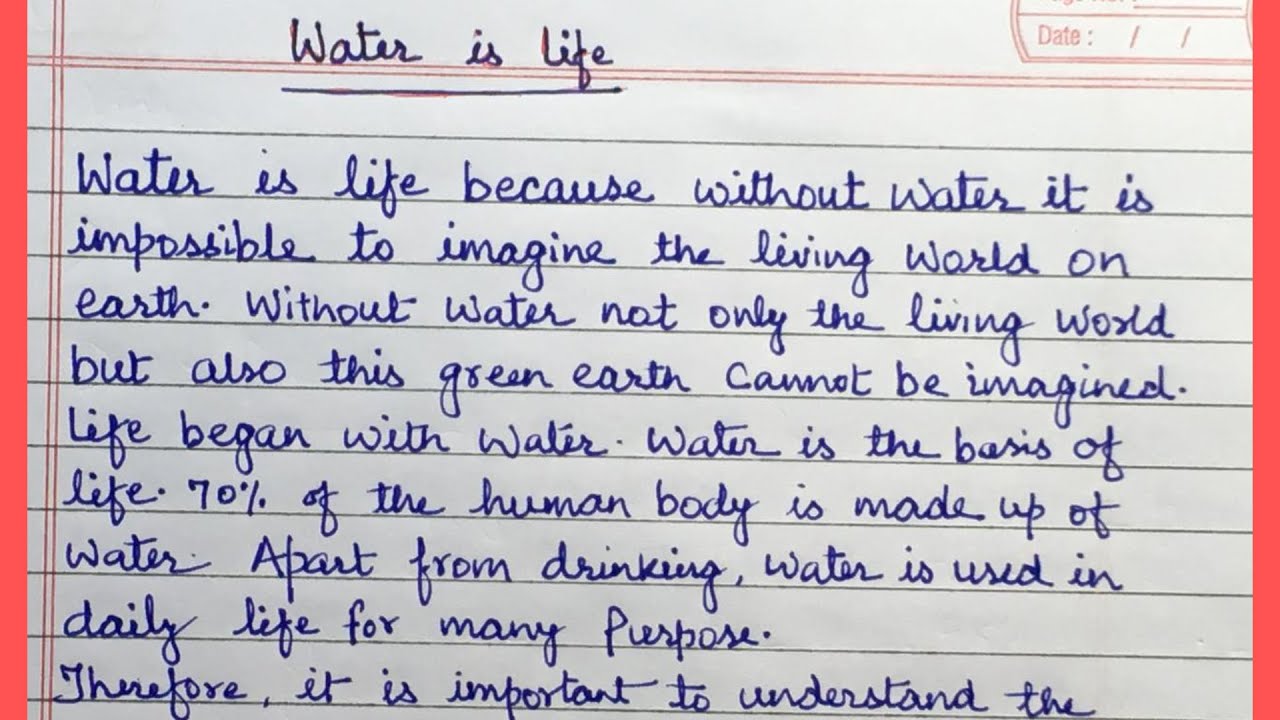 Date : / /
Water is life
Water is life because without water it is
impossible to imagine the living world on
earth. Without water not only the living world
but also this green earth cannot be imagined.
Life began with water. Water is the basis of
life. 70% of the human body is made up of
water. Apart from drinking, water is used in
daily life for many purpose.
Therefore, it is important to understand the